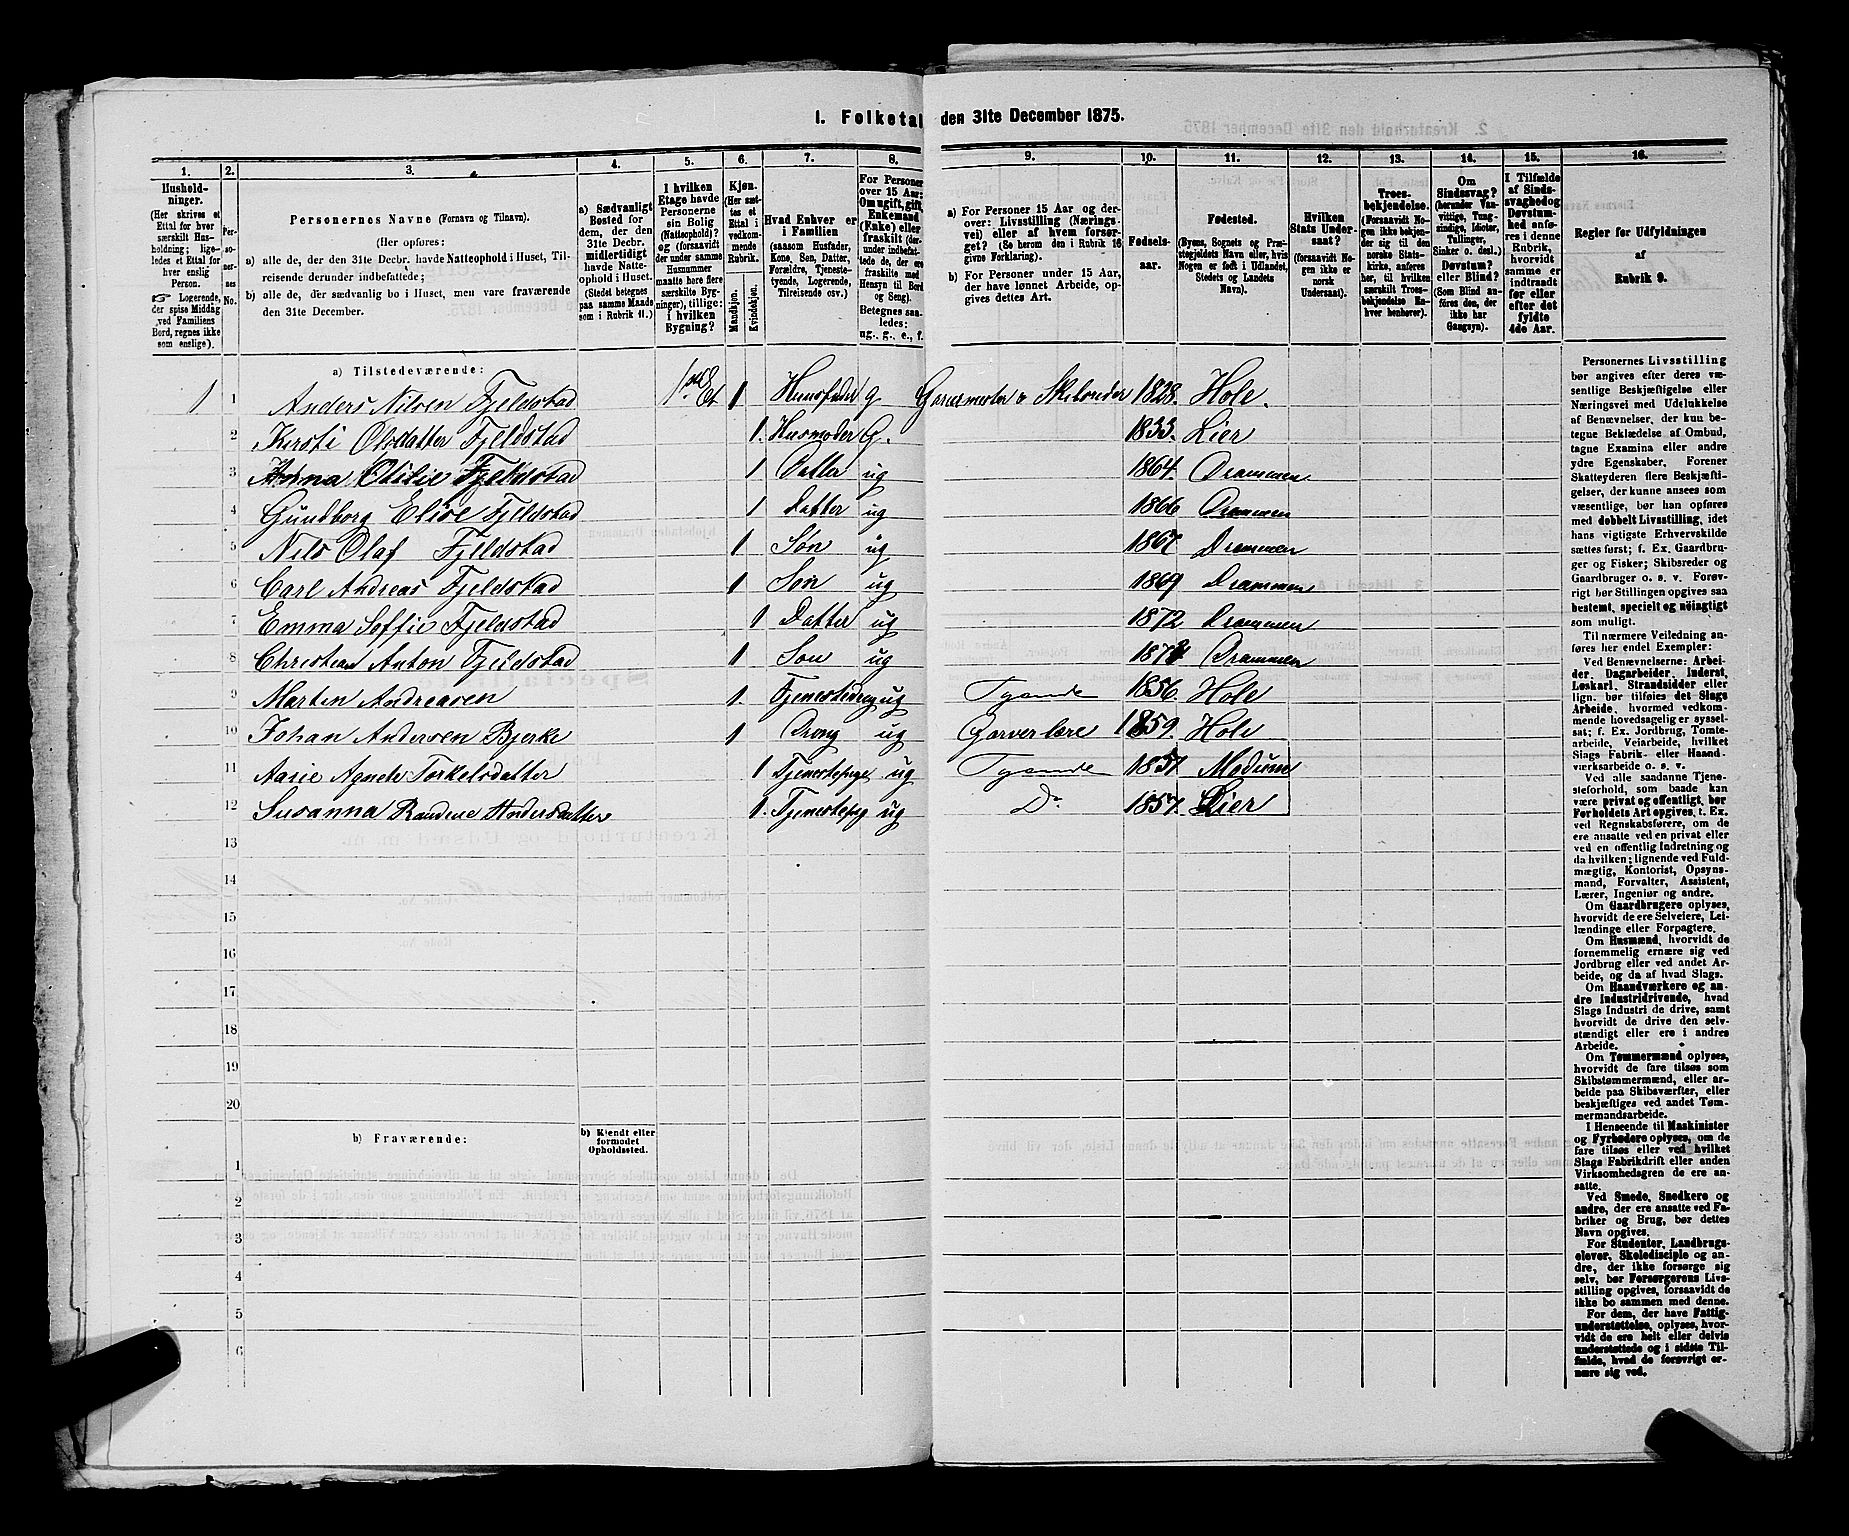 I. Folketal den 31te December 1875.
1. 2. 3. 4. 5. 6. 7. 8. 9. 10. 11. 12. 13. 14. 15. 16.
Hushold-
ninger.
(Her skrives et
Ettal for hver
særskilt Hus-
holdning; lige-
ledes et Ettal for
hver enslig
Person.
☞ Logerende,
der spise Middag
ved Familiens
Bord, regnes ikke
som enslige).
Per-
so-
ner-
nes
No.
Personernes Navne (Fornavn og Tilnavn).
(Her opføres:
a) alle de, der den 31te Decbr. havde Natteophold i Huset, Til-
reisende derunder indbefattede;
b) alle de, der sædvanlig bo i Huset, men vare fraværende
den 31te December.
a) Sædvanligt
Bosted for
dem, der den
31te Decbr.
midlertidigt
havde Natte-
ophold i Huset.
(Stedet betegnes
paa samme Maade
som i Rubrik 11.)
I hvilken
Etage havde
Personerne
sin Bolig
(Natteophold)?
og (forsaavidt
der under samme
Husnummer
maatte høre flere
særskilte Byg-
ninger), tillige:
i hvilken
Bygning?
Kjøn.
(Her sæt-
tes et
Ettal i
vedkom-
mende
Rubrik.
Mandkjøn.
Kvindekjøn.
Hvad Enhver er
i Familien
(saasom Husfader,
Kone, Søn, Datter,
Forældre, Tjeneste-
tyende, Logerende,
Tilreisende osv.)
For Personer
over 15 Aar:
Om ugift, gift,
Enkemand
(Enke) eller
fraskilt (der-
under indbefat-
tede de, der ere
fraskilte med
Hensyn til Bord
og Seng).
Betegnes saa-
ledes:
ug., g., e., f.
a) For Personer 15 Aar og der-
over: Livsstilling (Nærings-
vei) eller af hvem forsør-
get? (Se herom den i Rubrik 16
givne Forklaring).
b) For Personer under 15 Aar,
der have lønnet Arbeide, op-
gives dettes Art.
Fødsels-
aar.
Fødested.
(Byens, Sognets og Præ-
stegjeldets Navn eller, hvis
Nogen er født i Udlandet,
Stedets og Landets
Navn).
Hvilken
Stats Under-
saat?
(forsaavidt No-
gen ikke er
norsk
Undersaat).
Troes-
bekjendelse.
(Forsaavidt No-
gen ikke bekjen-
der sig til den
norske Stats-
kirke, anføres
her, til hvilken
særskilt Troes-
bekjendelse En-
hver henhører).
Om
Sindssvag?
(herunder Van-
vittige, Tung-
sindige, Idioter,
Tullinger,
Sinker o. desl.)
Døvstum?
eller Blind?
(Som Blind an-
føres den, der
ikke har
Gangsyn).
I Tilfælde
af Sinds-
svaghed og
Døvstum-
hed anfø-
res i denne
Rubrik,
hvorvidt
samme er
indtraadt
før eller
efter det
fyldte
4de Aar.
Regler for Udfyldningen
af
Rubrik 9.
a) Tilstedeværende:
1 1 Anders Nilsen Fjeldstad 1ste Et 1 Huusfader g Garvermester Skibsreder 1828. Hole.
2 Kirsti Olsdatter Fjeldstad 1. Husmoder G. 1833. Lier
3 Anna Otilie Fjeldstad 1 Datter ug 1864. Drammen
4 Gundborg Elise Fjeldstad 1 Datter ug 1866 Drammen
5 Nils Olaf Fjeldstad 1 Søn ug 1867 Drammen
6 Carl Andreas Fjeldstad 1 Søn ug 1869 Drammen
7 Emma Soffie Fjeldstad 1 Datter ug 1872 Drammen
8 Christian Anton Fjeldstad 1 Søn ug Drammen
9 Martin Andreasen 1. Tjenestedreng ug Tyende 1856. Hole
10 Johan Andersen Bjerke 1 Dreng ug Garverlære 1859. Hole
11 Aasie Agnete Torkelsdatter 1 Tjenestepige ug Tyende Modum
12 Susanna Randine Andersdatter 1. Tjenestepig ug Do 1857. Lier
13
14
15
16
17
18
19
20
b) Fraværende:
b) Kjendt eller
formodet
Opholdssted.
1
2
3
4
5
6
Personernes Livsstilling
bør angives efter deres væ-
sentlige Beskjæftigelse eller
Næringsvei med Udelukkelse
af Benævnelser, der kun be-
tegne Beklædelse af Ombud,
tagne Examina eller andre
ydre Egenskaber. Forener
Skatteyderen flere Beskjæfti-
gelser, der kunne ansees som
væsentlige, bør han opføres
med dobbelt Livsstilling, idet
hans vigtigste Erhvervskilde
sættes først; f. Ex. Gaardbru-
ger og Fisker; Skibsreder og
Gaardbruger o. s. v. Forøv-
rigt bør Stillingen opgives saa
bestemt, specielt og nöiagtigt
som muligt.
Til nærmere Veiledning an-
føres her endel Exempler:
Ved Benævnelserne: Arbei-
der, Dagarbeider, Inderst,
Løskarl, Strandsidder eller
lign. bør tilføies det Slags
Arbeide, hvormed vedkom-
mende hovedsagelig er syssel-
sat; f. Ex. Jordbrug, Tomte-
arbeide, Veiarbeide, hvilket
Slags Fabrik- eller Haand-
værksarbeide o. s. v.
Ved alle saadanne Tjene-
steforhold, som baade kan
være privat og offentligt, bør
Forholdets Art opgives, t. Ex.
ved Regnskabsførere, om de
ere ansatte ved en privat eller
ved en offentlig Indretning og
da hvilken; lignende ved Fuld-
mægtig, Kontorist, Opsyns-
mand, Forvalter, Assistent,
Lærer, Ingeniør og andre.
Om Gaardbrugere oplyses,
hvorvidt de ere Selveiere, Lei-
lændinge eller Forpagtere.
Om Husmænd, hvorvidt de
fornemmelig ernære sig ved
Jordbrug eller ved andet Ar-
beide, og da af hvad Slags.
Om Haandværkere og an-
dre Industridrivende, hvad
Slags Industri de drive, samt
hvorvidt de drive den selv-
stændigt eller ere i andres
Arbeide.
Om Tømmermænd oplyses,
hvorvidt de fare tilsøs som
Skibstømmermænd, eller ar-
beide paa Skibsværfter, eller
beskjæftiges ved andet Tøm-
mermandsarbeide.
I Henseende til Maskinister
og Fyrbødere oplyses, om de
fare tilsøs eller ved hvilket
Slags Fabrikdrift eller anden
Virksomhedsgren de ere an-
satte.
Ved Smede, Snedkere og
andre, der ere ansatte ved Fa-
briker og Brug, bør dettes
Navn opgives.
For Studenter, Landbrugs-
elever, Skoledisciple og an-
dre, der ikke forsørge sig
selv, bør Forsørgerens Livs-
stilling opgives, forsaavidt de
ikke bo sammen med denne.
For dem, der have Fattig-
understøttelse, oplyses, hvor-
vidt de ere helt eller delvis
understøttede og i sidste Til-
fælde, hvad de forøvrigt er-
nære sig ved.